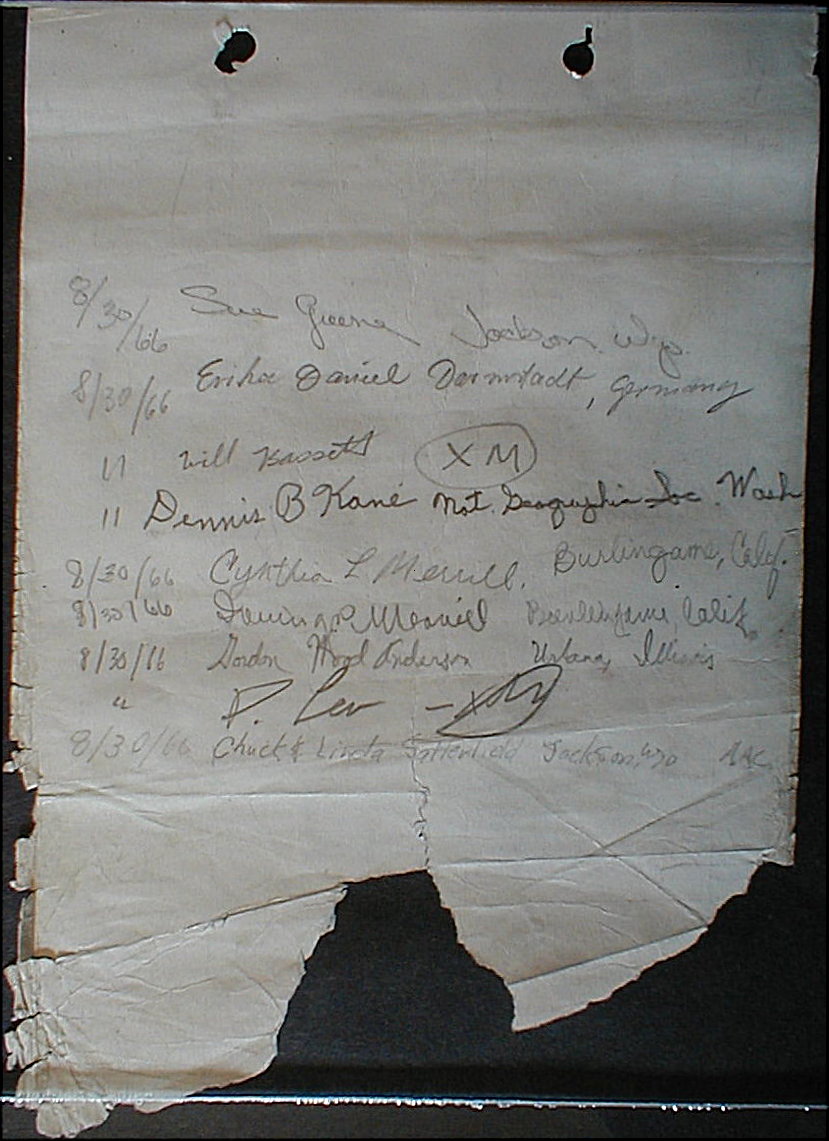 8/30/66 Sue Greene Jackson. Wyo.
8/30/66 Erika Daniel Darmstadt, Germany
" Will Bassett XM
" Dennis B Kane Nat. Geographic Soc. Wash
8/30/66 Cynthia L Merrill. Burlingame, Calif.
8/30/66 Merrill Burlingame, Calif.
8/30/66 Gordon Anderson Urbana, Illinois
" P. Lev - XM
8/30/66 Chuck & Linda Satterfield Jackson, Wyo AAC